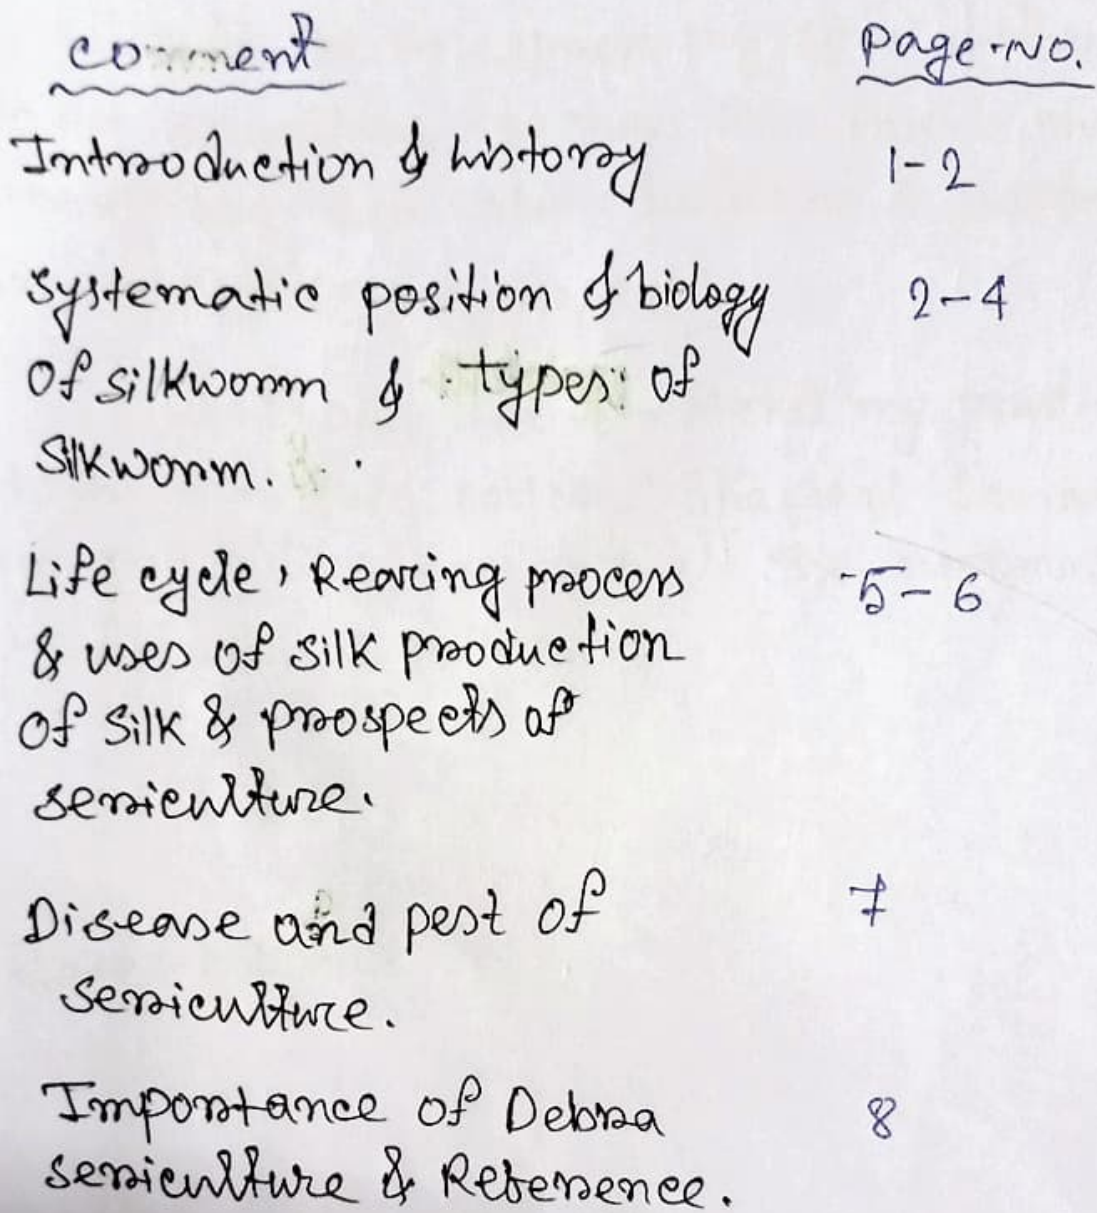 comment Page-No.
Introduction & history 1-2
Systematic position & biology 2-4
Of silkworm & types of
Silkworm.
Life cycle, Rearing process 5-6
& uses of silk production
Of Silk & prospects of
sericulture.
Disease and pest of 7
Sericulture.
Importance of Debra 8
sericulture & Reference.